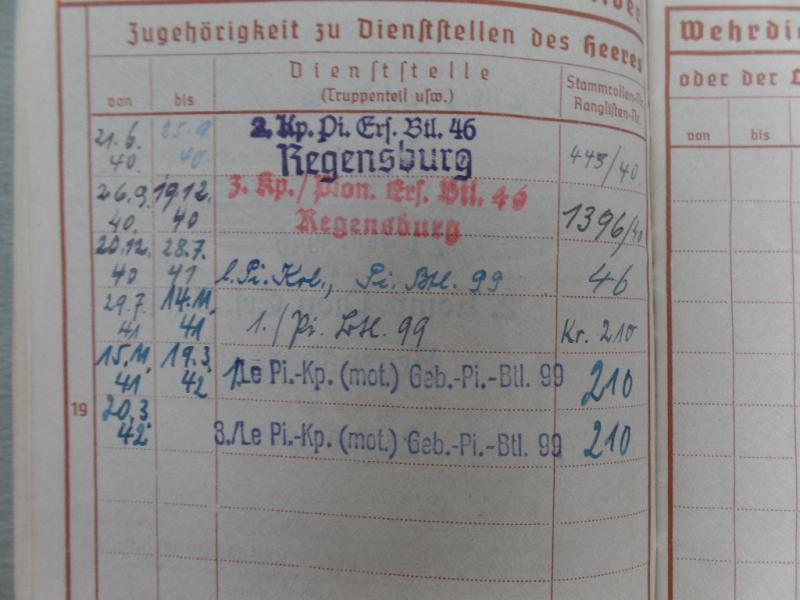 Zugehörigkeit zu Dienststellen des Heeres
von bis Dienststelle Stammrollen-Nr.
(Truppenteil usw.) Ranglisten-Nr.
21.6. 25.9. 2. Kp. Pi. Ers. Btl. 46
40. 40. Regensburg 445/40
26.9. 19.12. 3. Kp./Pion. Ers. Btl. 46
40. 40 Regensburg 1396/40
20.12. 28.7.
40 41 l. Pi. Kol., Pi. Btl. 99 46
29.7. 14.11.
41 41 1./Pi. Btl. 99 Kr. 210
15.11. 19.3.
41 42 1/Le Pi.-Kp. (mot.) Geb.-Pi.-Btl. 99 210
19 20.3.
42 3./Le Pi.-Kp. (mot.) Geb.-Pi.-Btl. 99 210
oder der
von bis